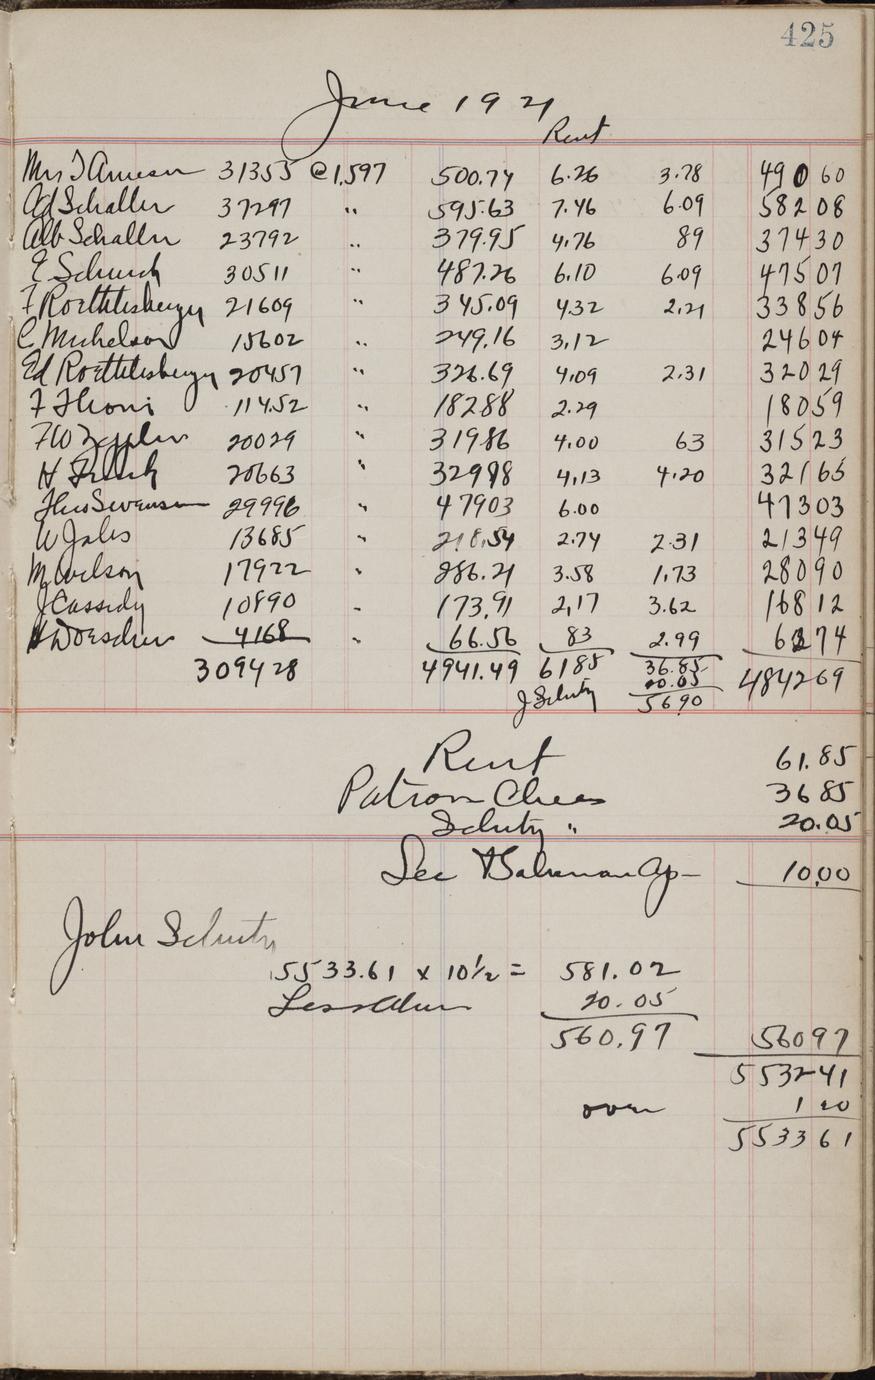 425
June 1921
Rent
Mrs T Arneson 31355 @ 1,597 500.74 6.26 3.78 490 60
Ad Schaller 37297 " 595.63 7.46 6.09 582 08
Alb Schaller 23792 " 379.95 4.76 89 374 30
E Schurch 30511 " 487.26 6.10 6.09 475 07
F Roethlisberger 21609 " 345.09 4.32 2.21 338 56
C Michelson 15602 " 249.16 3.12 246 04
Ed Roethlisberger 20457 " 326.69 4.09 2.31 320 29
F Thoni 11452 " 182 88 2.29 180 59
F W Zeppler 20029 " 319 86 4.00 63 315 23
H 20663 " 329 98 4.13 4.20 321 65
Theo Swenson 29996 " 479 03 6.00 473 03
W Jales 13685 " 218.54 2.74 2.31 213 49
M Wilson 17922 " 286.21 3.58 1.73 280 90
J Cassidy 10890 " 173.91 2.17 3.62 168 12
H Doescher 4168 " 66.56 83 2.99 62 74
309428 4941.49 61 85 36.85 4842 69
20.05
J Schutz 56 90
Rent 61.85
Patron Chees 36 85
Schutz " 20.05
Sec & Salesman Ap- 10.00
John Schutz
5533.61 x 10 1/2 = 581.02
Less chees 20.05
560.97 560 97
5532 41
over 1 20
5533 61